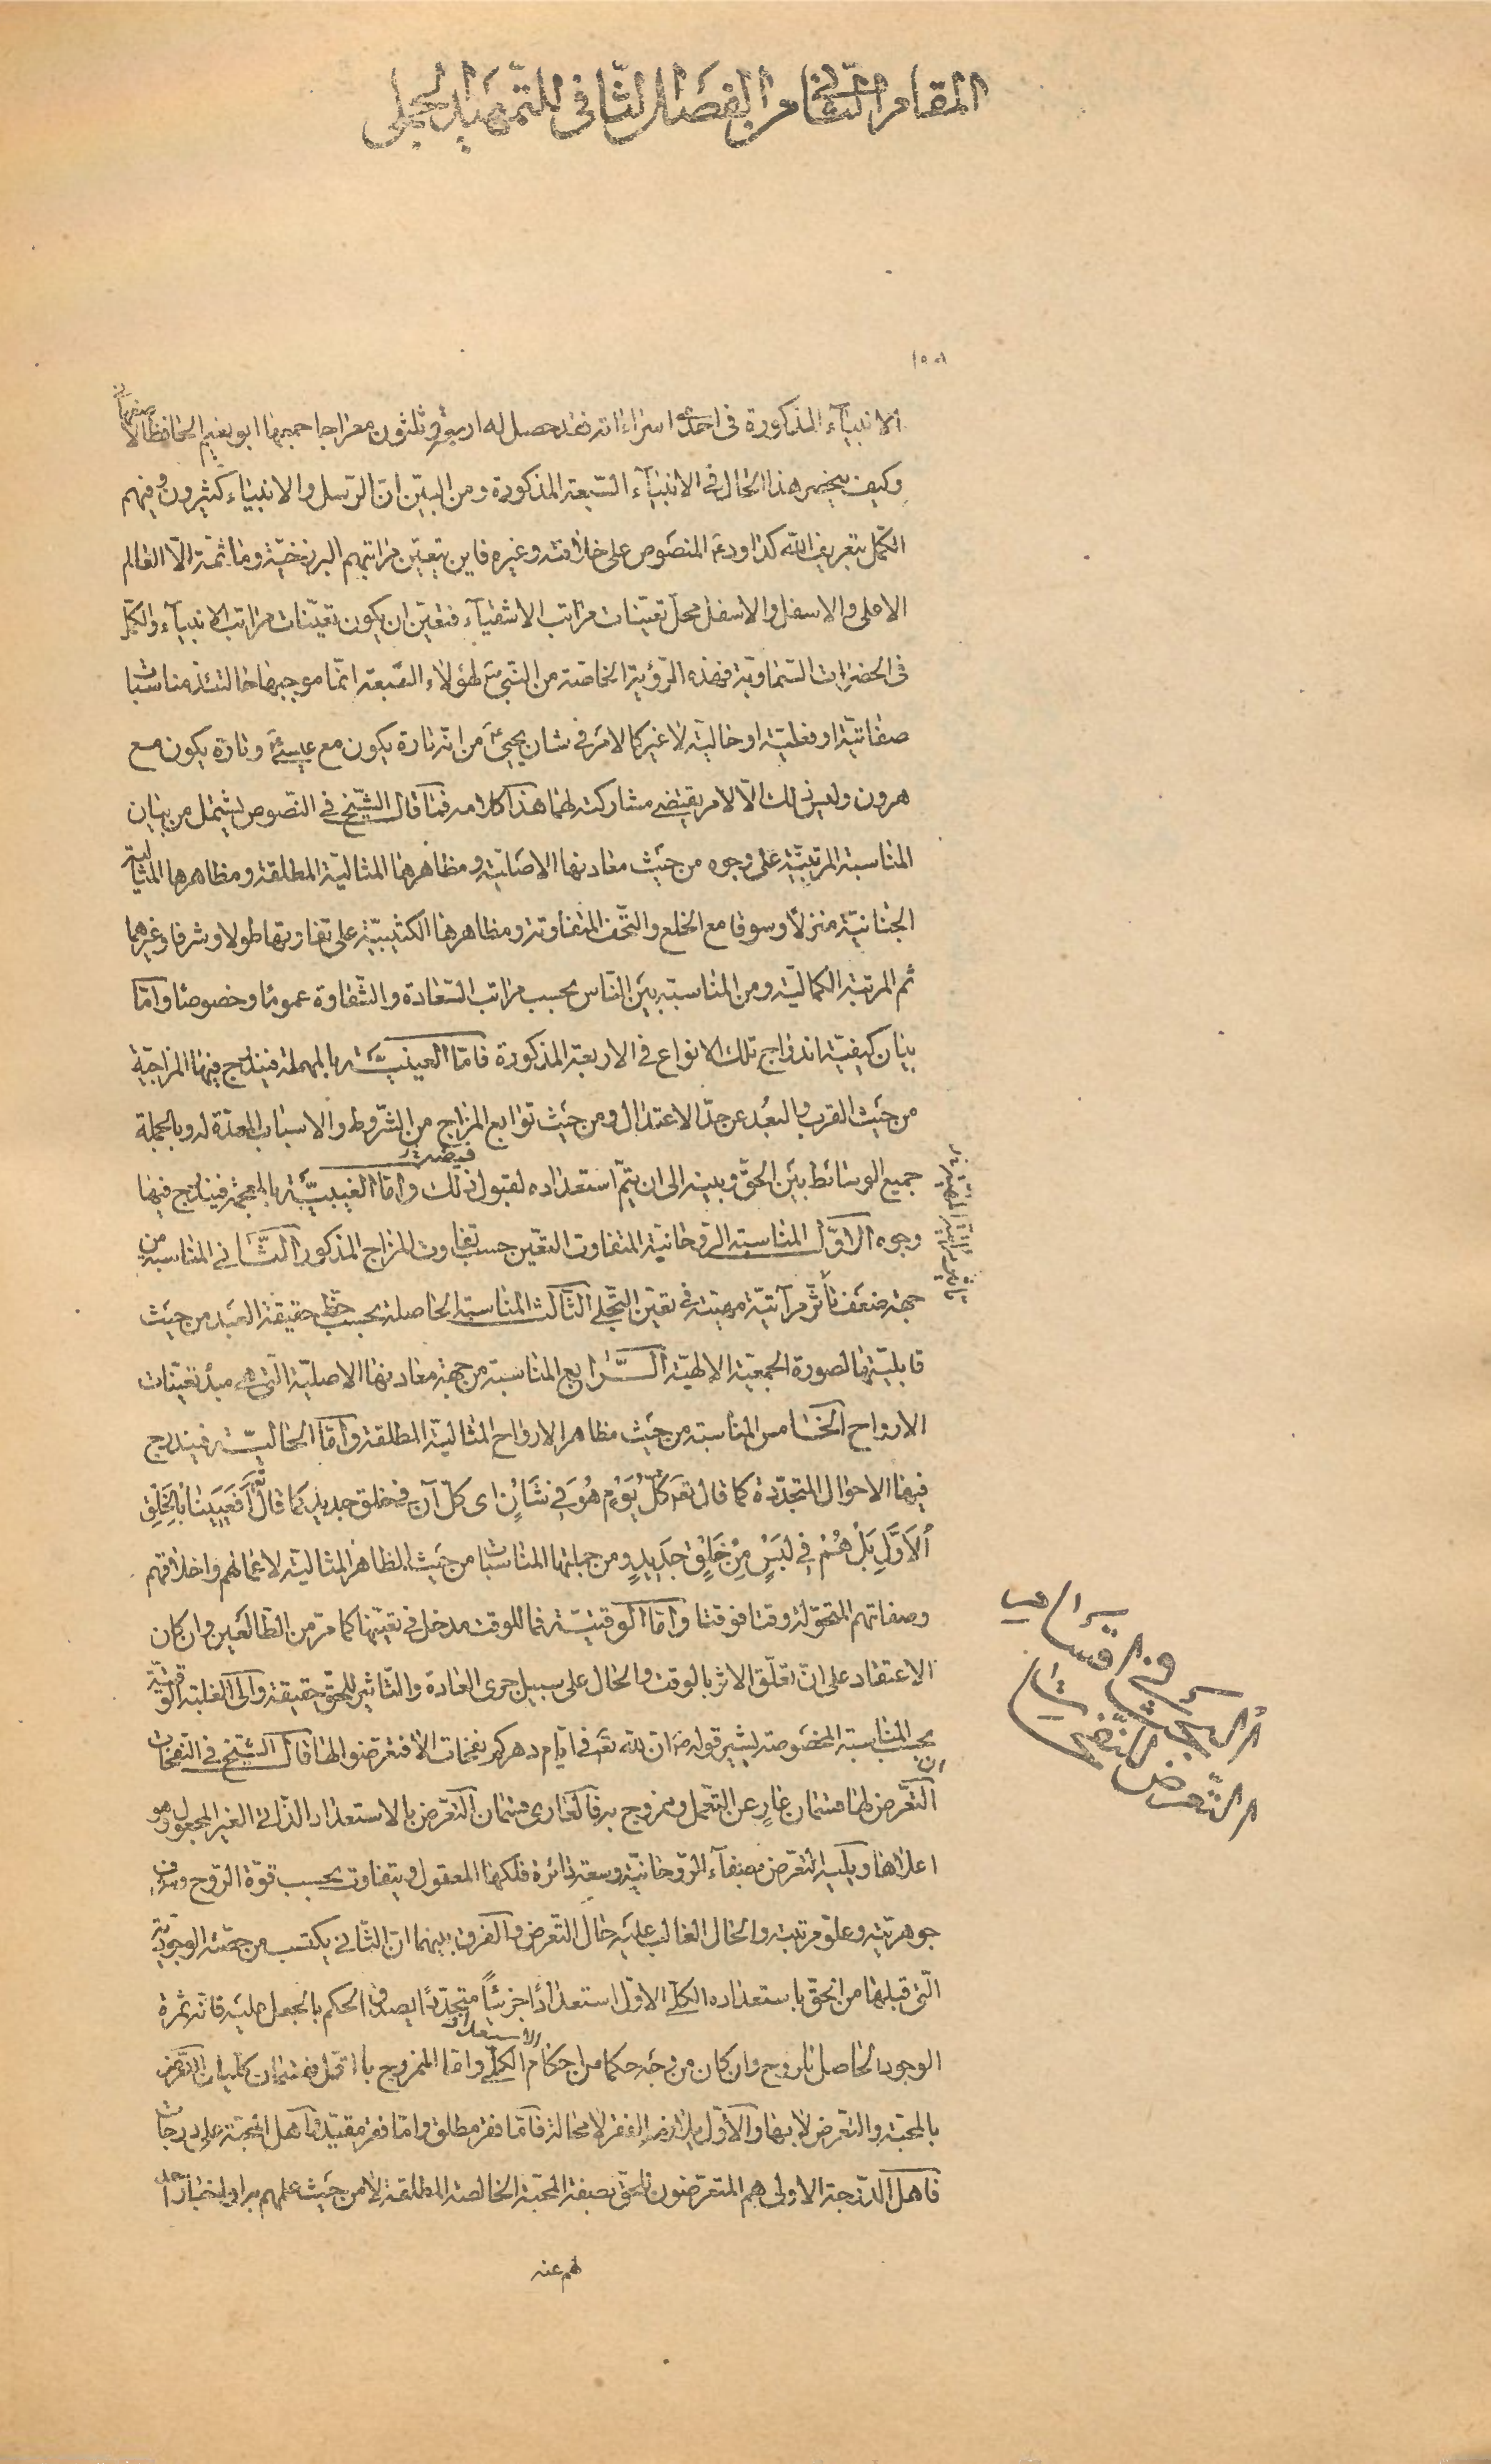 المقام الثانى من الفصل الثّانى للتّمهيد الجملى
١٥٨
الانبياء المذكورة فى احدى اسراءاته فقد حصل له اربعة وثلثون معراجا جميعها ابو نعيم الحافظ الاصفهانى
وكيف ينحصر هذا الحال فى الانبيآء السّبعة المذكورة ومن البيّن انّ الرّسل والانبياء كثيرون وفيهم
الكمّل بتعريف اللّه كداود ع المنصوص على خلافته وغيره فاين يتعيّن مراتبهم البرزخيّة وما ثمّة الّا العالم
الاعلى والاسفل والاسفل محلّ تعيّنات مراتب الاشقيآء فتعيّن ان يكون تعيّنات مراتب الانبيآء والكمّل
فى الحضرات السّماويّة فهذه الرّؤية الخاصّة من النّبىّ ص لهؤلاء السّبعة انّما موجبها حالتئذ مناسبات
صفاتيّة او فعليّة او حاليّة لا غير كالامر فى شان يحيى ع من انّه تارة يكون مع عيسى ع وتارة يكون مع
هرون وليس ذلك الّا لامر يقتضى مشاركته لهما هذا كلامه فما قال الشّيخ فى النّصوص يشتمل من بيان
المناسبة المرتبيّة على وجوه من حيث معادنها الاصليّة ومظاهرها المثاليّة المطلقة ومظاهرها المثاليّة
الجنانيّة منزلا وسوقا مع الخلع والتّحف المتفاوتة ومظاهرها الكثيبيّة على تفاوتها طولا وشرفا وغيرهما
ثم المرتبة الكماليّة ومن المناسبة بين النّاس بحسب مراتب السّعادة والشّقاوة عموما وخصوصا وامّا
بيان كيفيّة اندراج تلك الانواع فى الاربعة المذكورة فامّا العينيّة بالمهملة فيندرج فيها المزاجيّة
من حيث القرب والبعد عن حدّ الاعتدال ومن حيث توابع المزاج من الشّروط والاسباب المعدّة له وبالجملة
جميع الوسائط بين الحقّ وبينه الى ان يتمّ استعداده لقبول فيضه ذلك وامّا الغيبيّة بالمعجمة فيندرج فيها
وجوه الاوّل المناسبة الرّوحانيّة المتفاوت التعيّن حسب تفاوت المزاج المذكور الثّانى المناسبة من
جهة ضعف تأثّر مرآتيّة مرتبته فى تعيّن التجلّى الثّالث المناسبة الحاصلة بحسب حظّ حقيقة العبد من حيث
قابليّتها لصورة الجمعيّة الالهيّة الرّابع المناسبة من جهة معادنها الاصليّة الّتى هى مبدأ تعيّنات
الارواح الخامس المناسبة من حيث مظاهر الارواح المثاليّة المطلقة وامّا الحاليّة فيندرج
فيها الاحوال المتجدّدة كما قال تعه كُلَّ يَوْمٍ هُوَ فِي شَأْنٍ اى كلّ آن فى خلق جديد كما قال تعه أَفَعَيِينَا بِالْخَلْقِ
الْأَوَّلِ بَلْ هُمْ فِي لَبْسٍ مِنْ خَلْقٍ جَدِيدٍ ومن جملتها المناسبات من حيث المظاهر المثاليّة لاعمالهم واخلاقهم
وصفاتهم المتحوّلة وقتا فوقتا وامّا الوقتيّة فما للوقت مدخل فى تعيّنها كما مرّ من الطّالعين وان كان
الاعتقاد على انّ تعلّق الاثر بالوقت والحال على سبيل جرى العادة والتّاثير للحقّ حقيقة والى الغلبة الوقتيّة
بحسب المناسبة المخصوصة يشير قوله ص ان للّه تعه فى ايّام دهركم نفحات الا فتعرّضوا لها قال الشّيخ فى النفحات
ان التّعرّض لها قسمان عارٍ عن التّعمّل وممزوج به فالعارى قسمان التّعرّض بالاستعداد الذّاتى الغير المجعول وهو
اعلاها ويليه التّعرّض بصفآء الرّوحانيّة وسعة دائرة فلكها المعقول ويتفاوت بحسب قوّة الرّوح وشرف
جوهريّته وعلوّ مرتبته والحال الغالب عليه حال التّعرّض والفرق بينهما انّ الثّانى يكتسب من جمعيّته الوجوديّة
الّتى قبلها من الحقّ باستعداده الكلّى الاوّل استعدادًا جزئيّاً متجدّدًا يصدق الحكم بالجعل عليه فانّه ثمرة
الوجود الحاصل للروح وان كان من وجه حكما من احكام الاستعداد الكلّى وامّا الممزوج بالتعمّل فقسمان كلّيان التّعرّض
بالمحبّة والتّعرّض لا بها والاوّل يلازمه الفقر لا محالة فامّا فقر مطلق وامّا فقر مقيّد فاهل المحبّة على درجات
فاهل الدّرجة الاولى هم المتعرّضون للحقّ بصفة المحبّة الخالصة المطلقة لا من حيث علمهم به او اخبار احد
لهم عنه
البحث فى اقسام
التّعرّض للنّفحات